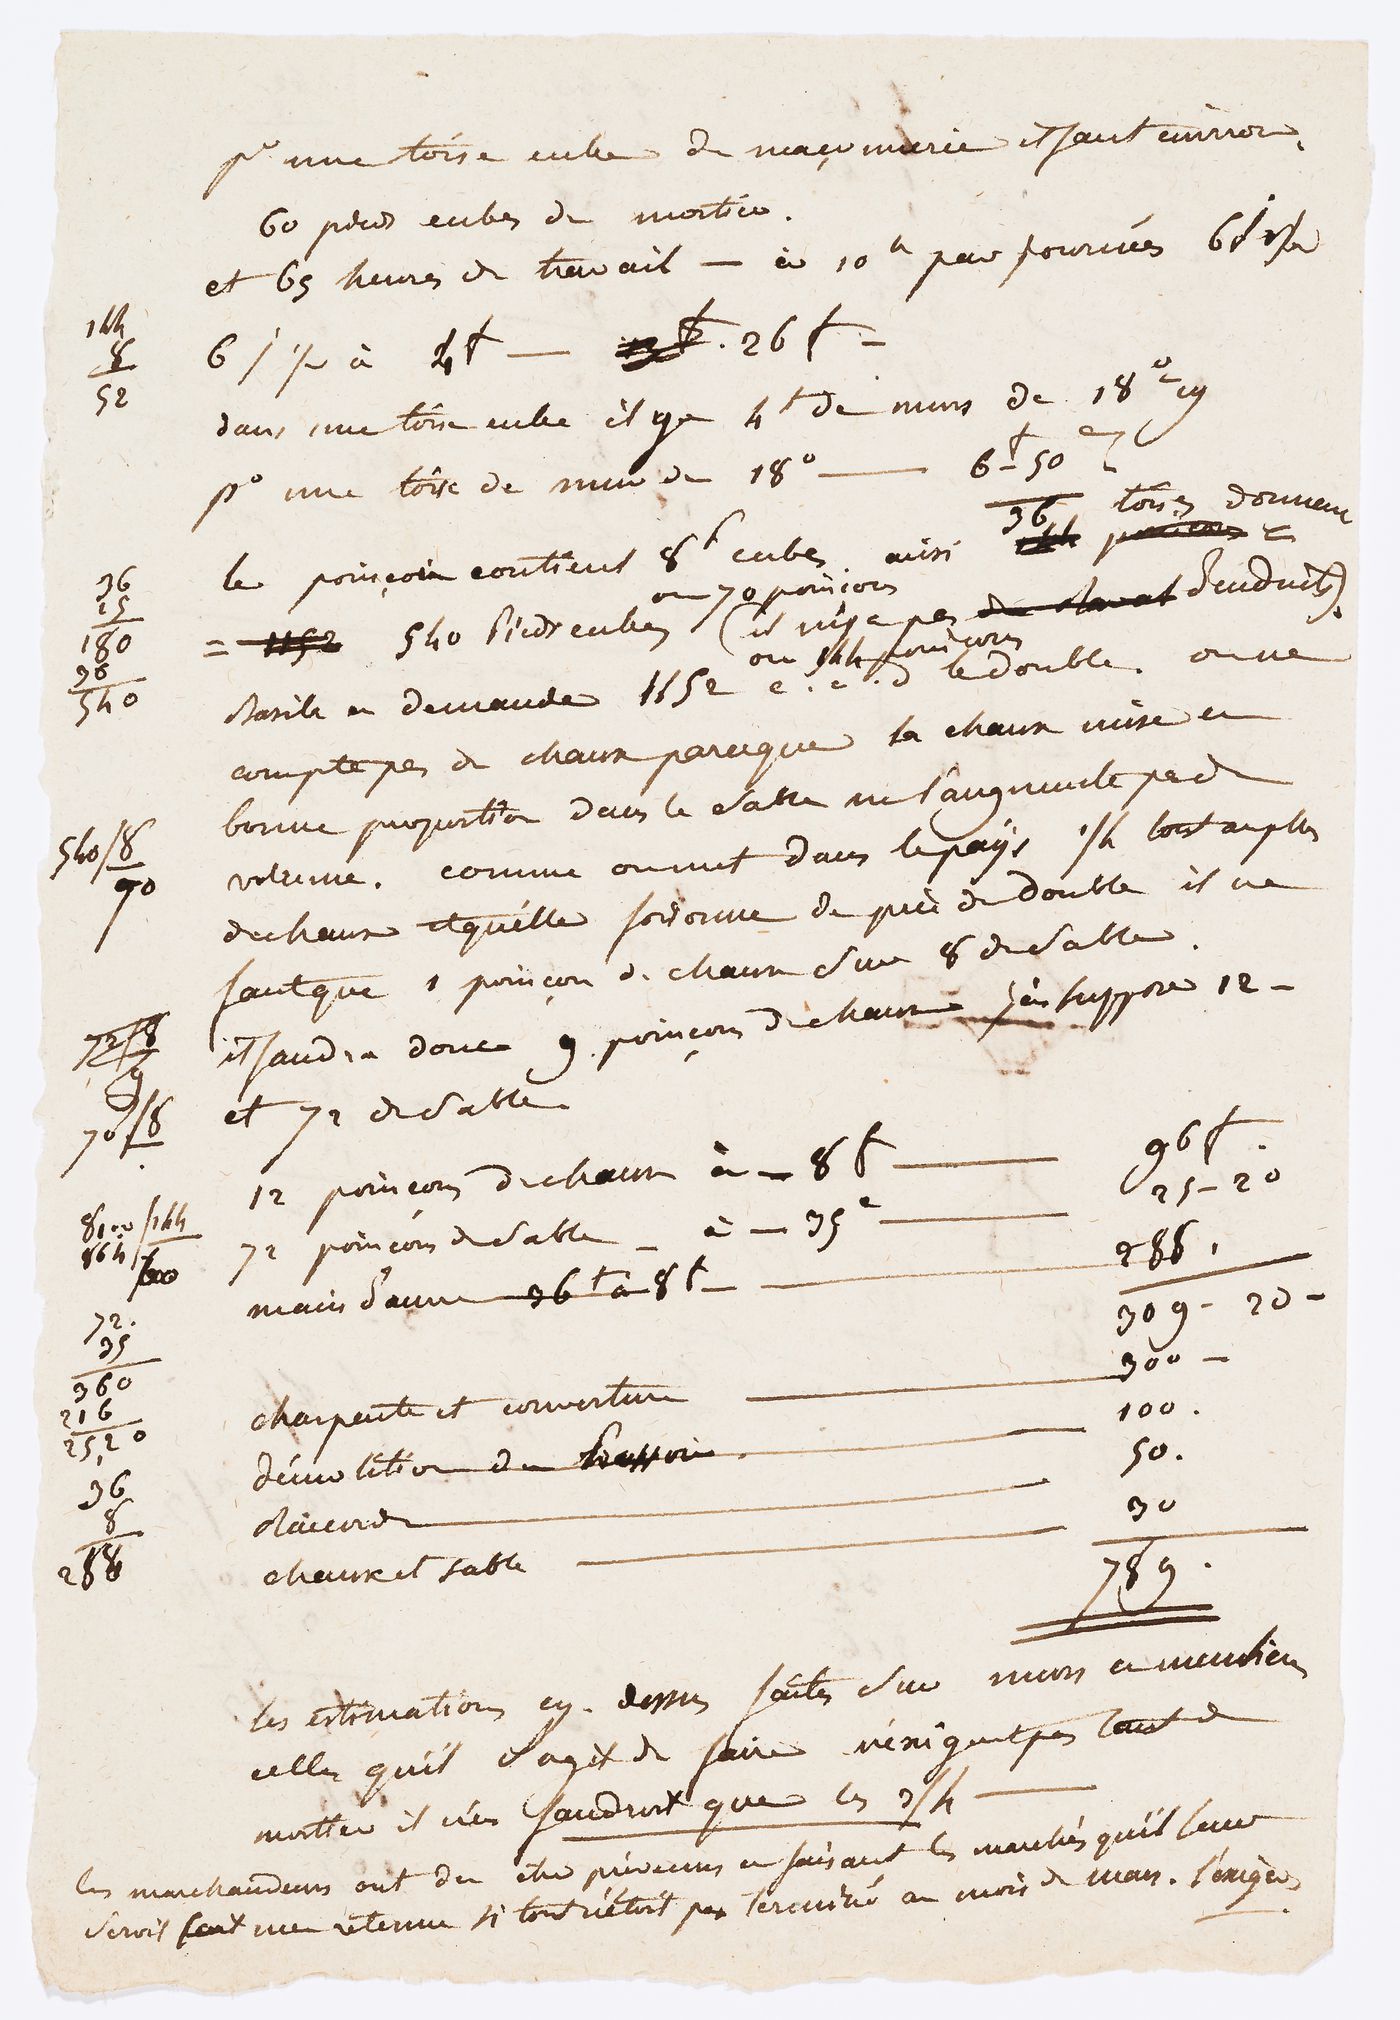 po une toise cube de maçonnerie il faut environ
60 pieds cubes de mortier.
et 65 heures de travail — à 10 h par journées 6 j 1/2
144
8
52
6 j 1/2 à 4 f — 26 f —
dans une toise cube il y a 4 t de murs de 18 o
po une toise de mur de 18 o — 6 f - 50 c
36 toises donnent
le poinçon contient 8 p cubes ainsi
ou 70 poinçons
36
15
180
36
540
= 1152 540 pieds cubes (il n'y a pas d'enduits).
ou 144 poinçons
en demande 1152 c. a. d le double. on ne
compte pas de chaux parceque la chaux mise en
bonne proportion dans le sable ne l'augmente pas de
540/8
70
volume. comme on met dans le pays 1/4 tout au plus
de chaux et qu'elle foisonne de près du double il ne
faut que 1 poinçon de chaux sur 8 de sable.
72/8
9
il faudra donc 9 poinçons de chaux j'en suppose 12 —
70/8
et 72 de sable
12 poinçons de chaux à — 8 f — 96 f.
8100/144
864
72 poinçons de sable — à — 35 c — 25 - 20
main d'œuvre 36 t à 8 f — 288.
309 - 20 -
72.
35
360
216
25,20
charpente et couverture — 300 —
démolition du — 100.
36
8
288
— 50.
chaux et sable — 30
789.
les estimations cy-dessus faites sur murs en moellons
celles qu'il s'agit de faire n'exigent pas tant de
mortier il n'en faudroit que les 3/4 —
les marchandeurs ont du etre prévenus en faisant les marchés qu'il leur
seroit fait une retenue si tout n'étoit pas terminé au mois de mars. l'exiger